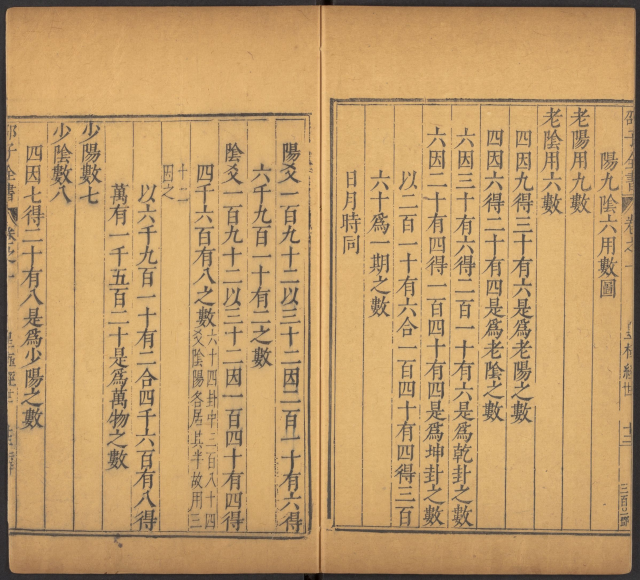 邵子全書 卷之一 皇極經世 十三 三百三
陽九陰六用數圖
老陽用九數
老陰用六數
四因九得三十有六是爲老陽之數
四因六得二十有四是爲老陰之數
六因三十有六得二百一十有六是爲乾卦之數
六因二十有四得一百四十有四是爲坤卦之數
以二百一十有六合一百四十有四得三百
六十爲一期之數
日月時同
陽爻一百九十二以三十二因二百一十有六得
六千九百一十有二之數
陰爻一百九十二以三十二因一百四十有四得
四千六百有八之數六十四卦中三百八十四
爻陰陽各居其半故用三
十二
因之
以六千九百一十有二合四千六百有八得
萬有一千五百二十是爲萬物之數
少陽數七
少陰數八
四因七得二十有八是爲少陽之數
邵子全書 卷之一 皇極經世